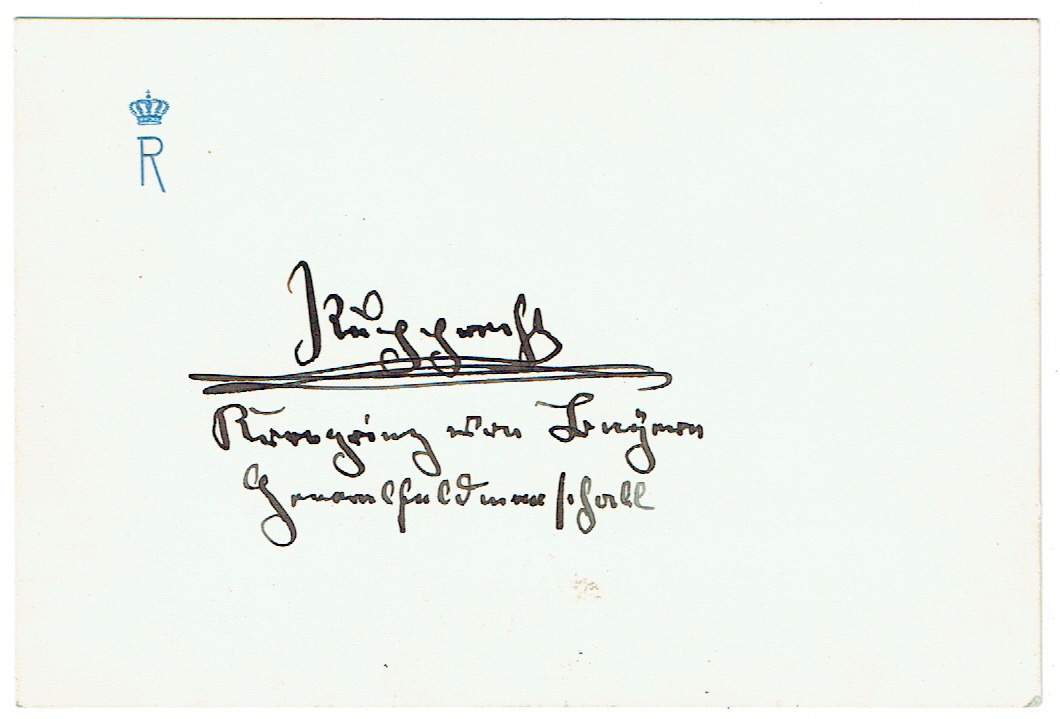 R
Rupprecht
Kronprinz von Bayern
Generalfeldmarschall